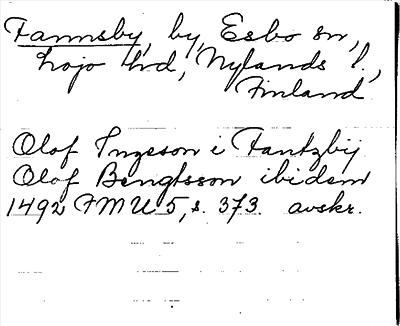 Fannsby, by, Esbo sn,
Lojo hd, Nylands l.,
Finland
Olof Ingeson i Fantzby
Olof Bengtsson ibidem
1492 FMU 5, s. 373. avskr.